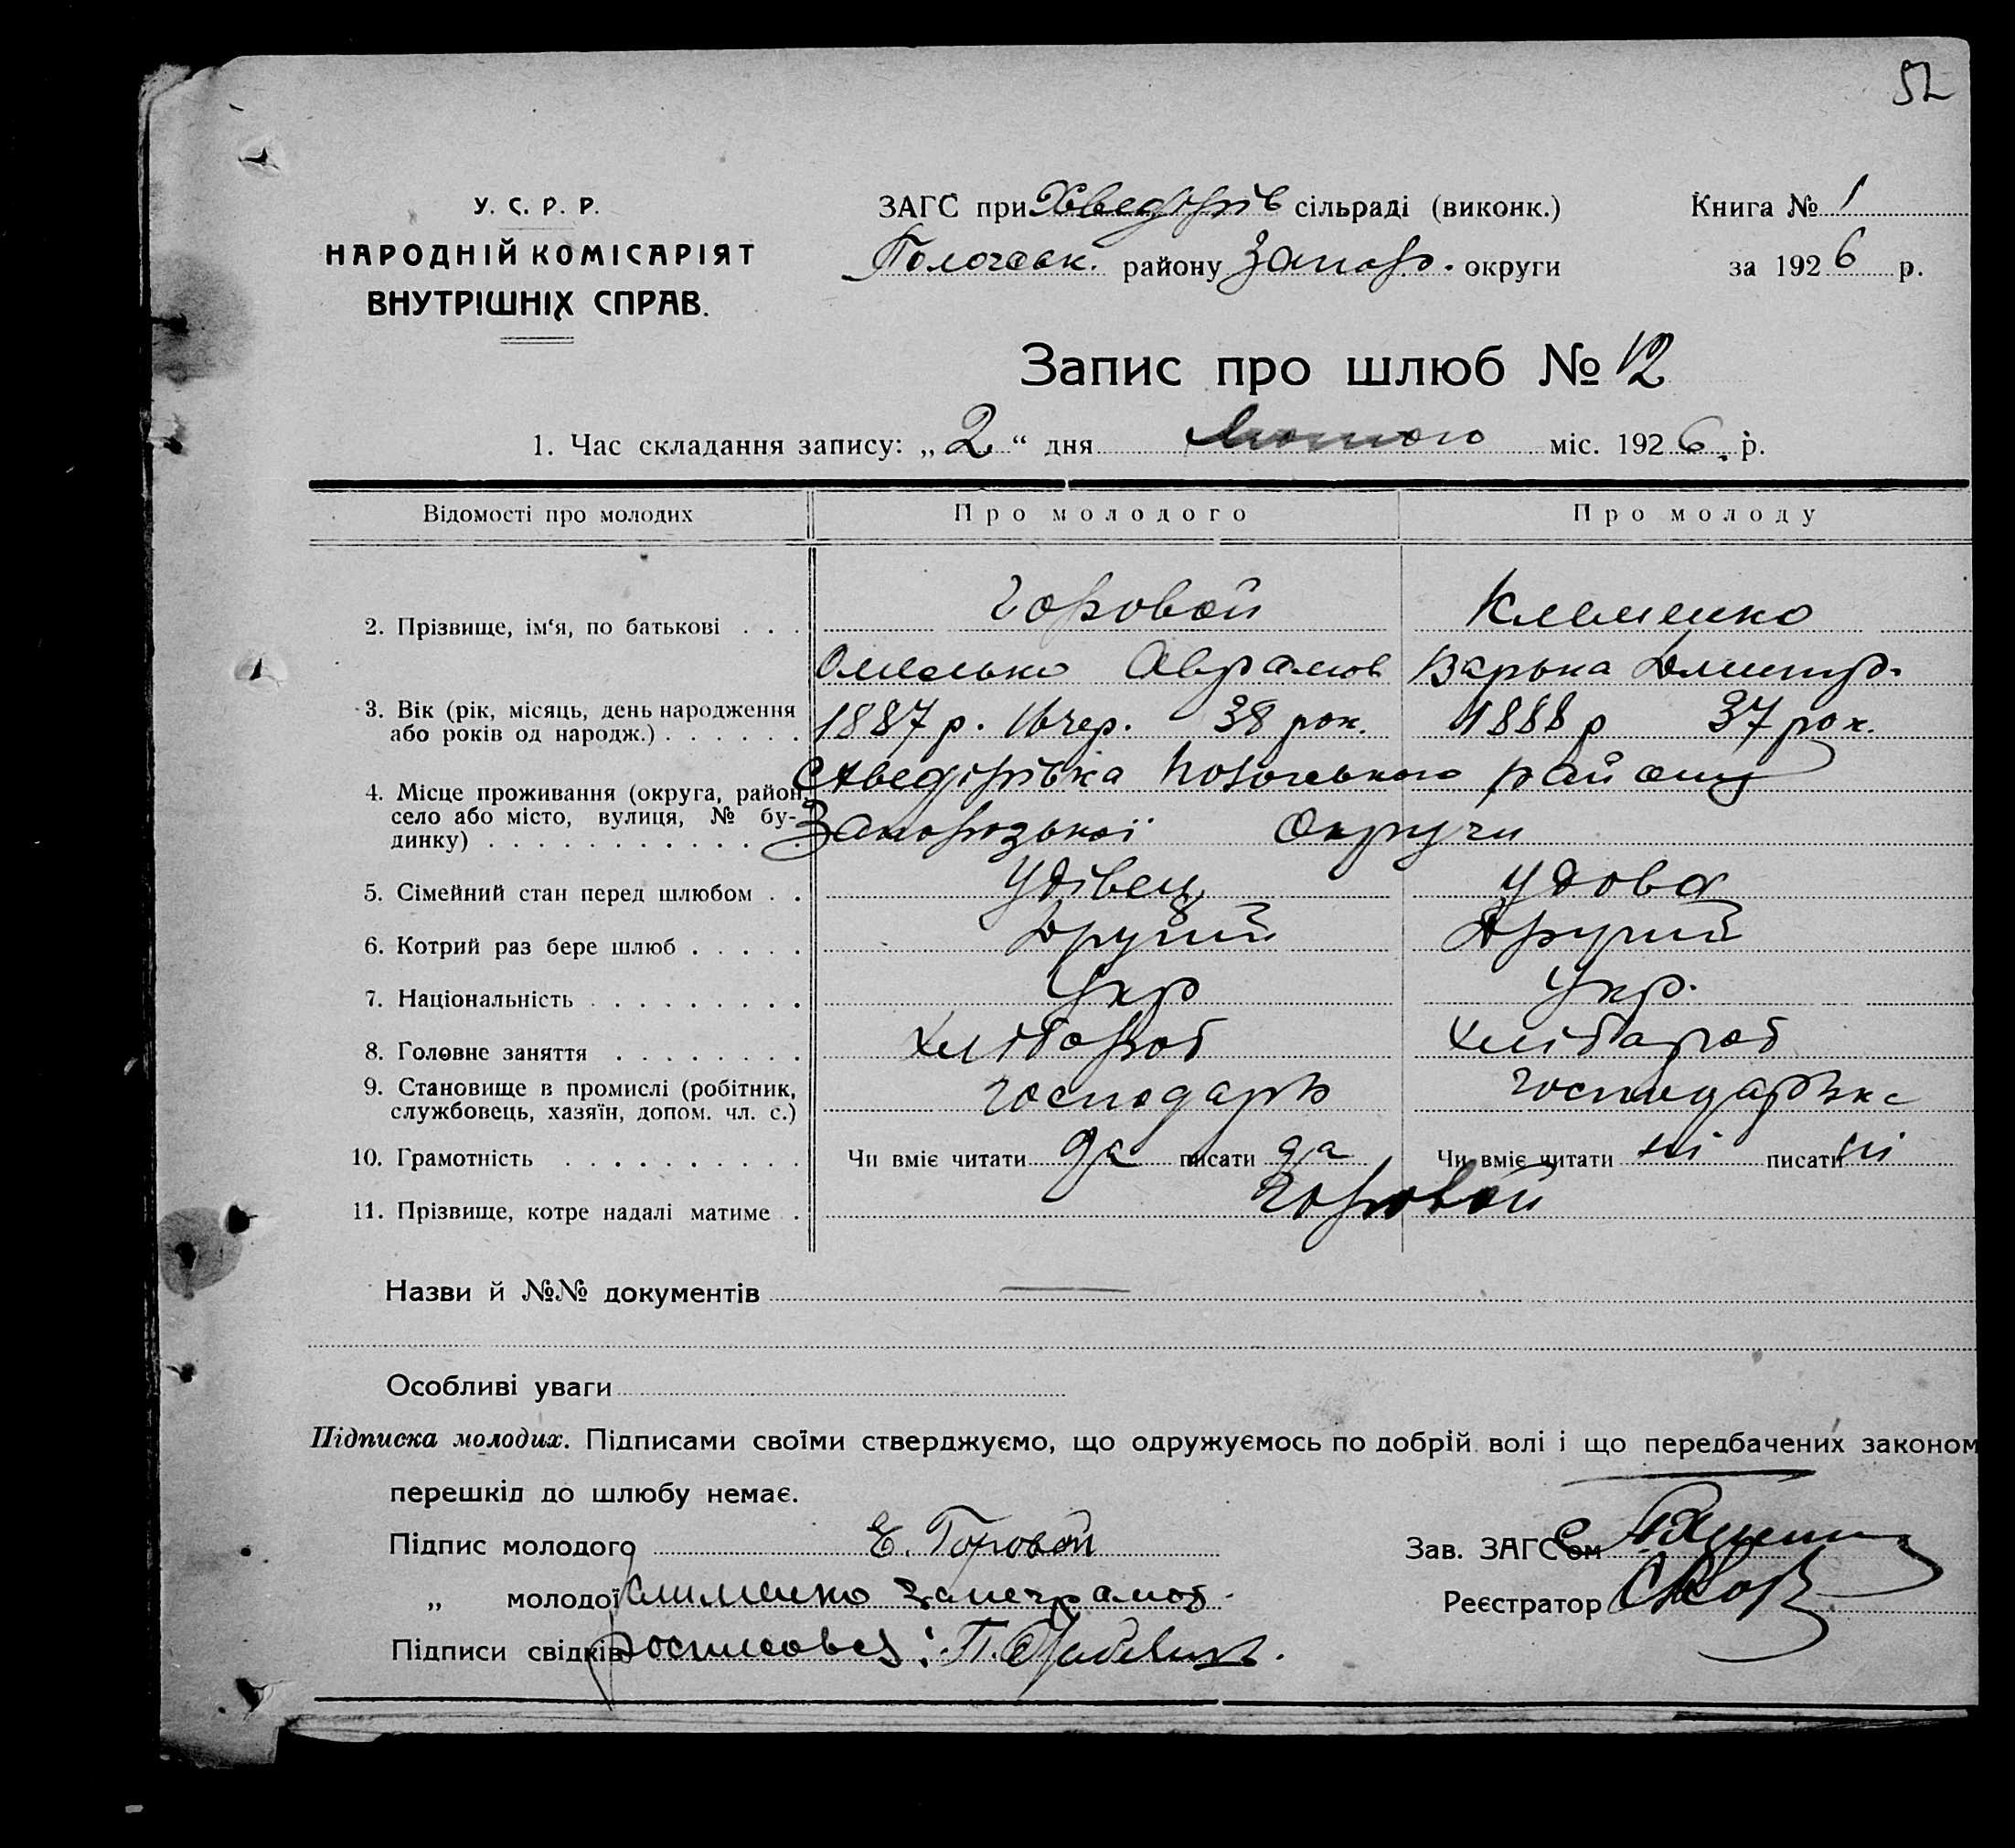 52
У. С. Р. Р.
НАРОДНІЙ КОМІСАРІЯТ
ВНУТРІШНІХ СПРАВ.
ЗАГС при Хведорів сільраді (виконк.)
Пологовськ. району Запор. округи
Книга № 1
за 1926 р.
Запис про шлюб № 12
1. Час складання запису: „2“ дня Лютого міс. 1926. р.
Відомості про молодих Про молодого Про молоду
2. Прізвище, ім‘я, по батькові . . . Горовой Клеменко
Омелько Аврамов Варька Дмитр.
3. Вік (рік, місяць, день народження
або років од народж.) . . . . . . 1887 р. 38 рок. 1888 р 37 рок.
4. Місце проживання (округа, район,
село або місто, вулиця, № бу-
динку) . . . . . . . . . . . .
району
Запорозької Округи
5. Сімейний стан перед шлюбом . . Удівець Удова
6. Котрий раз бере шлюб . . . . . Другий Другий
7. Національність . . . . . . . . . Укр Укр.
8. Головне заняття . . . . . . . . Хлібороб Хлібороб
9. Становище в промислі (робітник,
службовець, хазяїн, допом. чл. с.) господарь господарька
10. Грамотність . . . . . . . . . . Чи вміє читати да писати да Чи вміє читати ні писати ні
11. Прізвище, котре надалі матиме . Горовой
Назви й №№ документів —
Особливі уваги
Підписка молодих. Підписами своїми стверджуємо, що одружуємось по добрій волі і що передбачених законом
перешкід до шлюбу немає.
Підпис молодого Е. Горовой
Зав. ЗАГС'ом
„ молодої Клименко
Реєстратор
Підписи свідків росписовся: П.